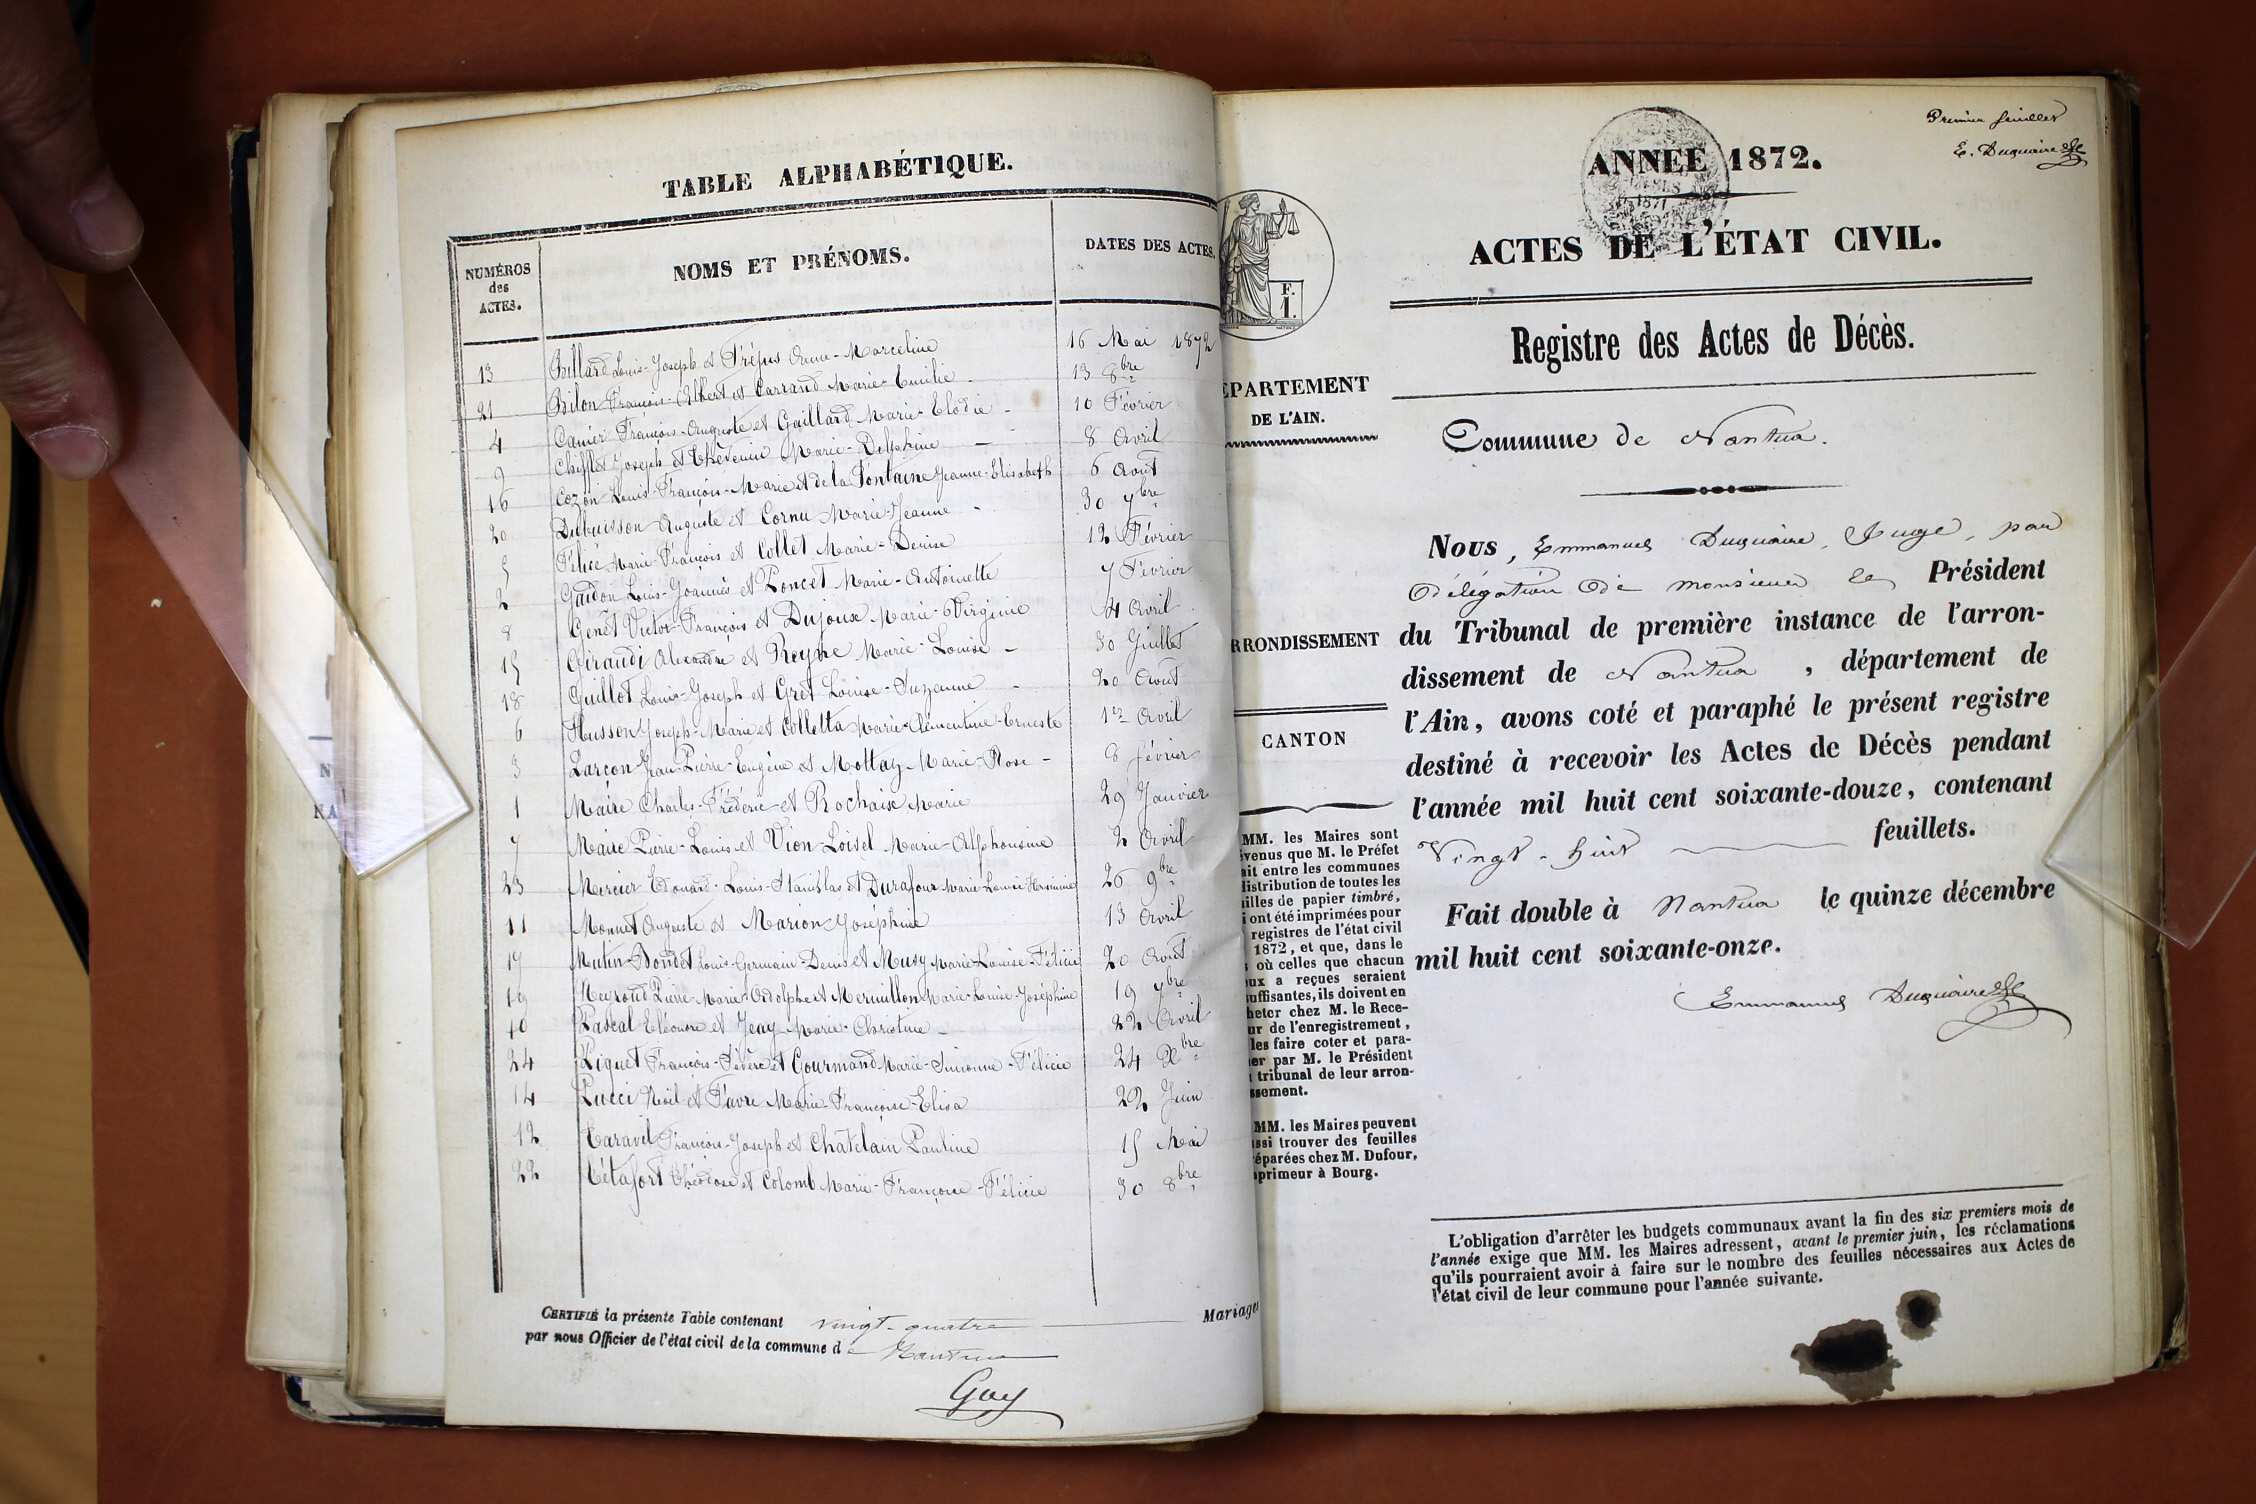 TABLE ALPHABÉTIQUE.
NUMÉROS
des
ACTES.
NOMS ET PRÉNOMS.
DATES DES ACTES.
13 Billard Louis-Joseph et Trépus Anne-Marceline 16 Mai 1872
21 Bilon François-Albert et Carrand Marie-Emilie 13 8bre
4 Canier François-Auguste et Gaillard Marie-Elodie - 10 Février
9 Chifflet Joseph et Thévenin Marie-Delphine - 8 Avril
16 Cozon Louis-François-Marie et de la Fontaine Jeanne-Elisabeth 6 Août
20 Dubuisson Auguste et Cornu Marie-Jeanne - 30 7bre
5 Félicé Marie-François et Collet Marie-Denise 12 Février
2 Gaidon Louis-Joannès et Poncet Marie-Antoinette 7 Février
8 Genet Victor-François et Dujoux Marie-Virginie 4 Avril
15 Giraudi Alexandre et Reyne Marie-Louise - 30 Juillet
18 Guillot Louis-Joseph et Gret Louise-Suzanne - 20 Août
6 Husson Joseph-Marie et Colletta Marie-Clémentine-Erneste 1er Avril
3 Larçon Jean-Pierre-Eugène et Mottay Marie-Rose - 8 février
1 Maire Charles-Fréderic et Rochaix Marie 29 Janvier
7 Maire Pierre-Louis et Vion-Loisel Marie-Alphonsine 2 Avril
23 Mercier Edouard-Louis-Stanislas et Durafour Marie-Louise-Hermine 26 9bre
11 Monnet Auguste et Marion Joséphine 13 Avril
17 Mutin-Dondet Louis-Germain-Denis et Musy Marie-Louise-Félicie 20 Août
19 Neyroud Pierre-Marie-Adolphe et Mermillon Marie-Louise-Joséphine 19 7bre
10 Pascal Eléonore et Jeay Marie-Christine - 22 Avril
24 Piquet François-Sévère et Gourmand Marie-Simonne-Félicie 24 Xbre
14 Pucci Noël et Favre Marie-Françoise-Elisa 22 Juin
12 Taravel François-Joseph et Chatelain Pauline 15 Mai
22 Tétafort Théodose et Colomb Marie-Françoise-Félicie 30 8bre
CERTIFIÉ la présente Table contenant vingt-quatre Mariages
par nous Officier de l'état civil de la commune de Nantua
Guy
Premier feuillet
E. Duquaire
ANNEE 1872.
ACTES DE L'ÉTAT CIVIL.
F.
1.
Registre des Actes de Décès.
ÉPARTEMENT
DE L'AIN.
RRONDISSEMENT
CANTON
MM. les Maires sont
évenus que M. le Préfet
ait entre les communes
distribution de toutes les
uilles de papier timbré,
i ont été imprimées pour
registres de l'état civil
1872, et que, dans le
s où celles que chacun
eux a reçues seraient
suffisantes, ils doivent en
heter chez M. le Rece-
ur de l'enregistrement,
les faire coter et para-
er par M. le Président
tribunal de leur arron-
ssement.
MM. les Maires peuvent
ssi trouver des feuilles
éparées chez M. Dufour,
primeur à Bourg.
Commune de Nantua.
Nous, Emmanuel Duquaire, Juge, par
délégation de monsieur le Président
du Tribunal de première instance de l'arron-
dissement de Nantua, département de
l'Ain, avons coté et paraphé le présent registre
destiné à recevoir les Actes de Décès pendant
l'année mil huit cent soixante-douze, contenant
Vingt-huit feuillets.
Fait double à Nantua le quinze décembre
mil huit cent soixante-onze.
Emmanuel Duquaire
L'obligation d'arrêter les budgets communaux avant la fin des six premiers mois de
l'année exige que MM. les Maires adressent, avant le premier juin, les réclamations
qu'ils pourraient avoir à faire sur le nombre des feuilles nécessaires aux Actes de
l'état civil de leur commune pour l'année suivante.